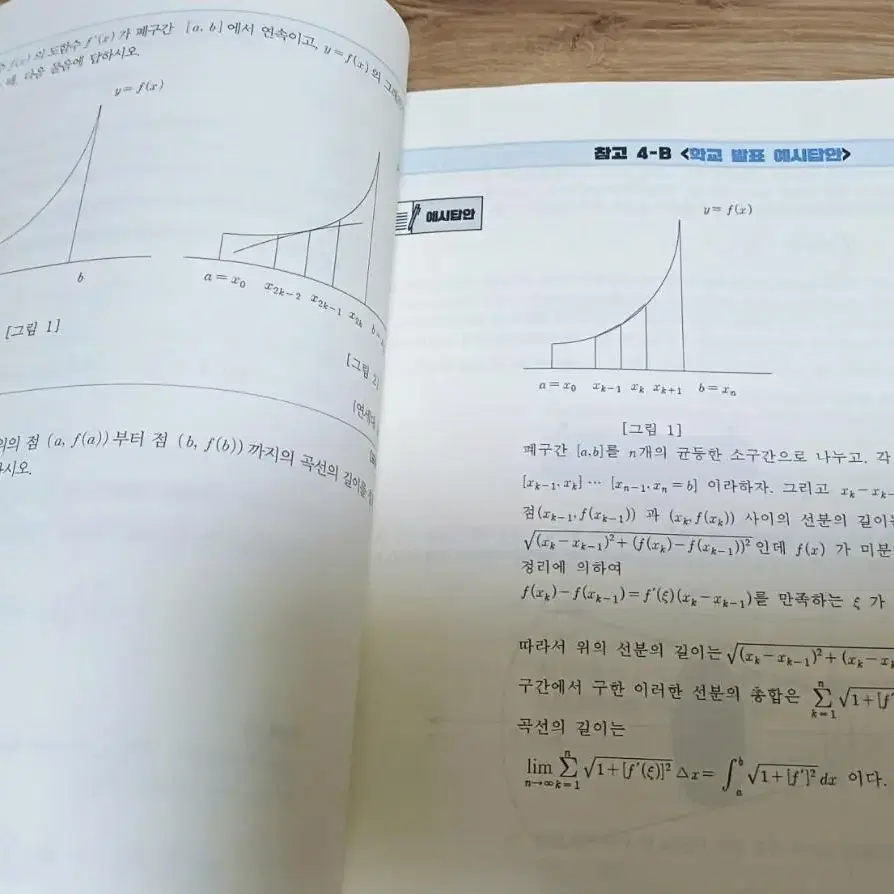 f(x) 의 도함수 f′(x) 가 폐구간 [a, b] 에서 연속이고, y = f(x) 의
때, 다음 물음에 답하시오.
y = f(x)
b
a = x₀ x₂ₖ₋₂ x₂ₖ₋₁ x₂ₖ b =
[그림 1]
[그림 2]
[연세대
점 (a, f(a)) 부터 점 (b, f(b)) 까지의 곡선의 길이를
하시오.
참고 4-B <학교 발표 예시답안>
예시답안
y = f(x)
a = x₀ xₖ₋₁ xₖ xₖ₊₁ b = xₙ
[그림 1]
폐구간 [a,b]를 n개의 균등한 소구간으로 나누고, 각
[xₖ₋₁, xₖ] ⋯ [xₙ₋₁, xₙ = b] 이라하자. 그리고 xₖ − xₖ₋
점(xₖ₋₁, f(xₖ₋₁)) 과 (xₖ, f(xₖ)) 사이의 선분의 길이는
√((xₖ − xₖ₋₁)² + (f(xₖ) − f(xₖ₋₁))²) 인데 f(x) 가 미분
정리에 의하여
f(xₖ) − f(xₖ₋₁) = f′(ξ)(xₖ − xₖ₋₁)를 만족하는 ξ 가
따라서 위의 선분의 길이는 √((xₖ − xₖ₋₁)² + (xₖ − xₖ
구간에서 구한 이러한 선분의 총합은 ∑ₖ₌₁ⁿ √(1 + [f′
곡선의 길이는
lim n→∞ ∑ₖ₌₁ⁿ √(1 + [f′(ξ)]²) Δx = ∫ₐᵇ √(1 + [f′]²) dx 이다.